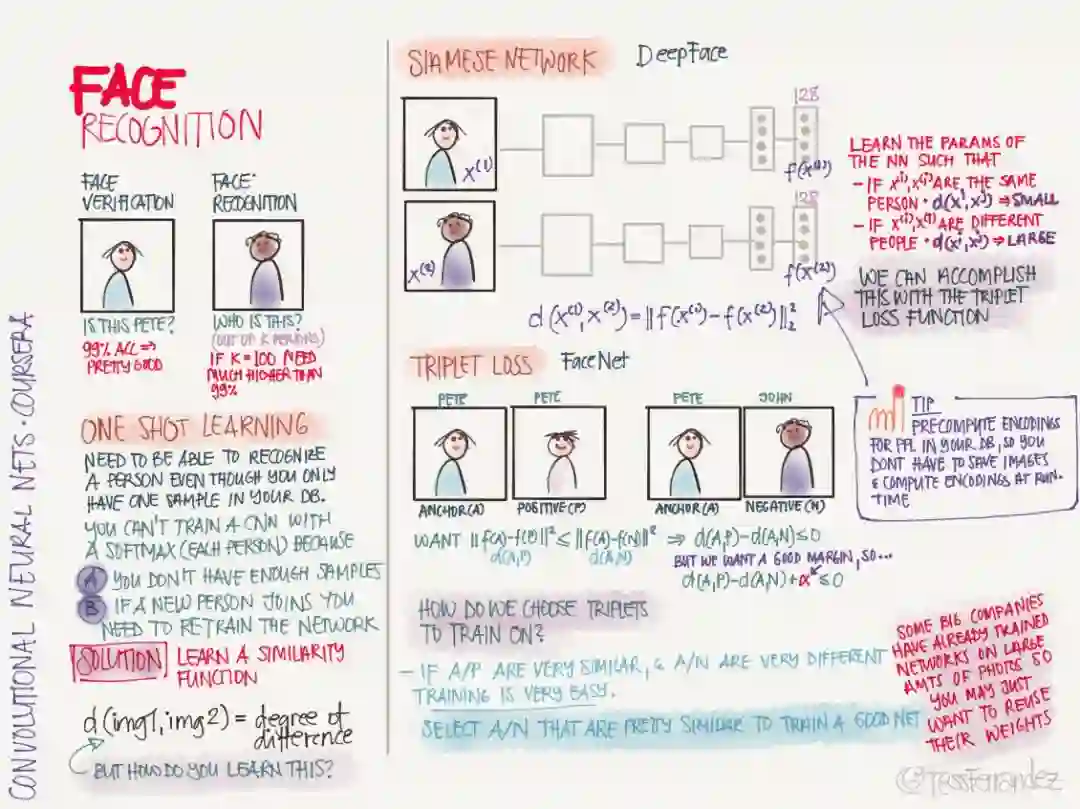 CONVOLUTIONAL NEURAL NETS · COURSERA
FACE
RECOGNITION
FACE
VERIFICATION
IS THIS PETE?
99% ACC ⇒
PRETTY GOOD
FACE
RECOGNITION
WHO IS THIS?
(OUT OF K PERSONS)
IF K=100 NEED
MUCH HIGHER THAN
99%
ONE SHOT LEARNING
NEED TO BE ABLE TO RECOGNIZE
A PERSON EVEN THOUGH YOU ONLY
HAVE ONE SAMPLE IN YOUR DB.
YOU CAN'T TRAIN A CNN WITH
A SOFTMAX (EACH PERSON) BECAUSE
A YOU DON'T HAVE ENOUGH SAMPLES
B IF A NEW PERSON JOINS YOU
NEED TO RETRAIN THE NETWORK
SOLUTION LEARN A SIMILARITY
FUNCTION
d(img1,img2) = degree of
difference
BUT HOW DO YOU LEARN THIS?
SIAMESE NETWORK DeepFace
x⁽¹⁾
128
f(x⁽¹⁾)
x⁽²⁾
128
f(x⁽²⁾)
d(x⁽¹⁾,x⁽²⁾)=||f(x⁽¹⁾)-f(x⁽²⁾)||²₂
LEARN THE PARAMS OF
THE NN SUCH THAT
- IF x⁽ⁱ⁾,x⁽ʲ⁾ ARE THE SAME
PERSON · d(xⁱ,xʲ) ⇒ SMALL
- IF x⁽ⁱ⁾,x⁽ʲ⁾ ARE DIFFERENT
PEOPLE · d(xⁱ,xʲ) ⇒ LARGE
WE CAN ACCOMPLISH
THIS WITH THE TRIPLET
LOSS FUNCTION
TIP
PRECOMPUTE ENCODINGS
FOR PPL IN YOUR DB, SO YOU
DONT HAVE TO SAVE IMAGES
& COMPUTE ENCODINGS AT RUN-
TIME
TRIPLET LOSS FaceNet
PETE PETE PETE JOHN
ANCHOR(A) POSITIVE(P) ANCHOR(A) NEGATIVE(N)
WANT ||f(A)-f(P)||² ≤ ||f(A)-f(N)||² ⇒ d(A,P)-d(A,N)≤0
d(A,P) d(A,N)
BUT WE WANT A GOOD MARGIN, SO...
d(A,P)-d(A,N)+α≤0
HOW DO WE CHOOSE TRIPLETS
TO TRAIN ON?
- IF A/P ARE VERY SIMILAR, & A/N ARE VERY DIFFERENT
TRAINING IS VERY EASY.
SELECT A/N THAT ARE PRETTY SIMILAR TO TRAIN A GOOD NET
SOME BIG COMPANIES
HAVE ALREADY TRAINED
NETWORKS ON LARGE
AMTS OF PHOTOS SO
YOU MAY JUST
WANT TO REUSE
THEIR WEIGHTS
@TessFerrandez